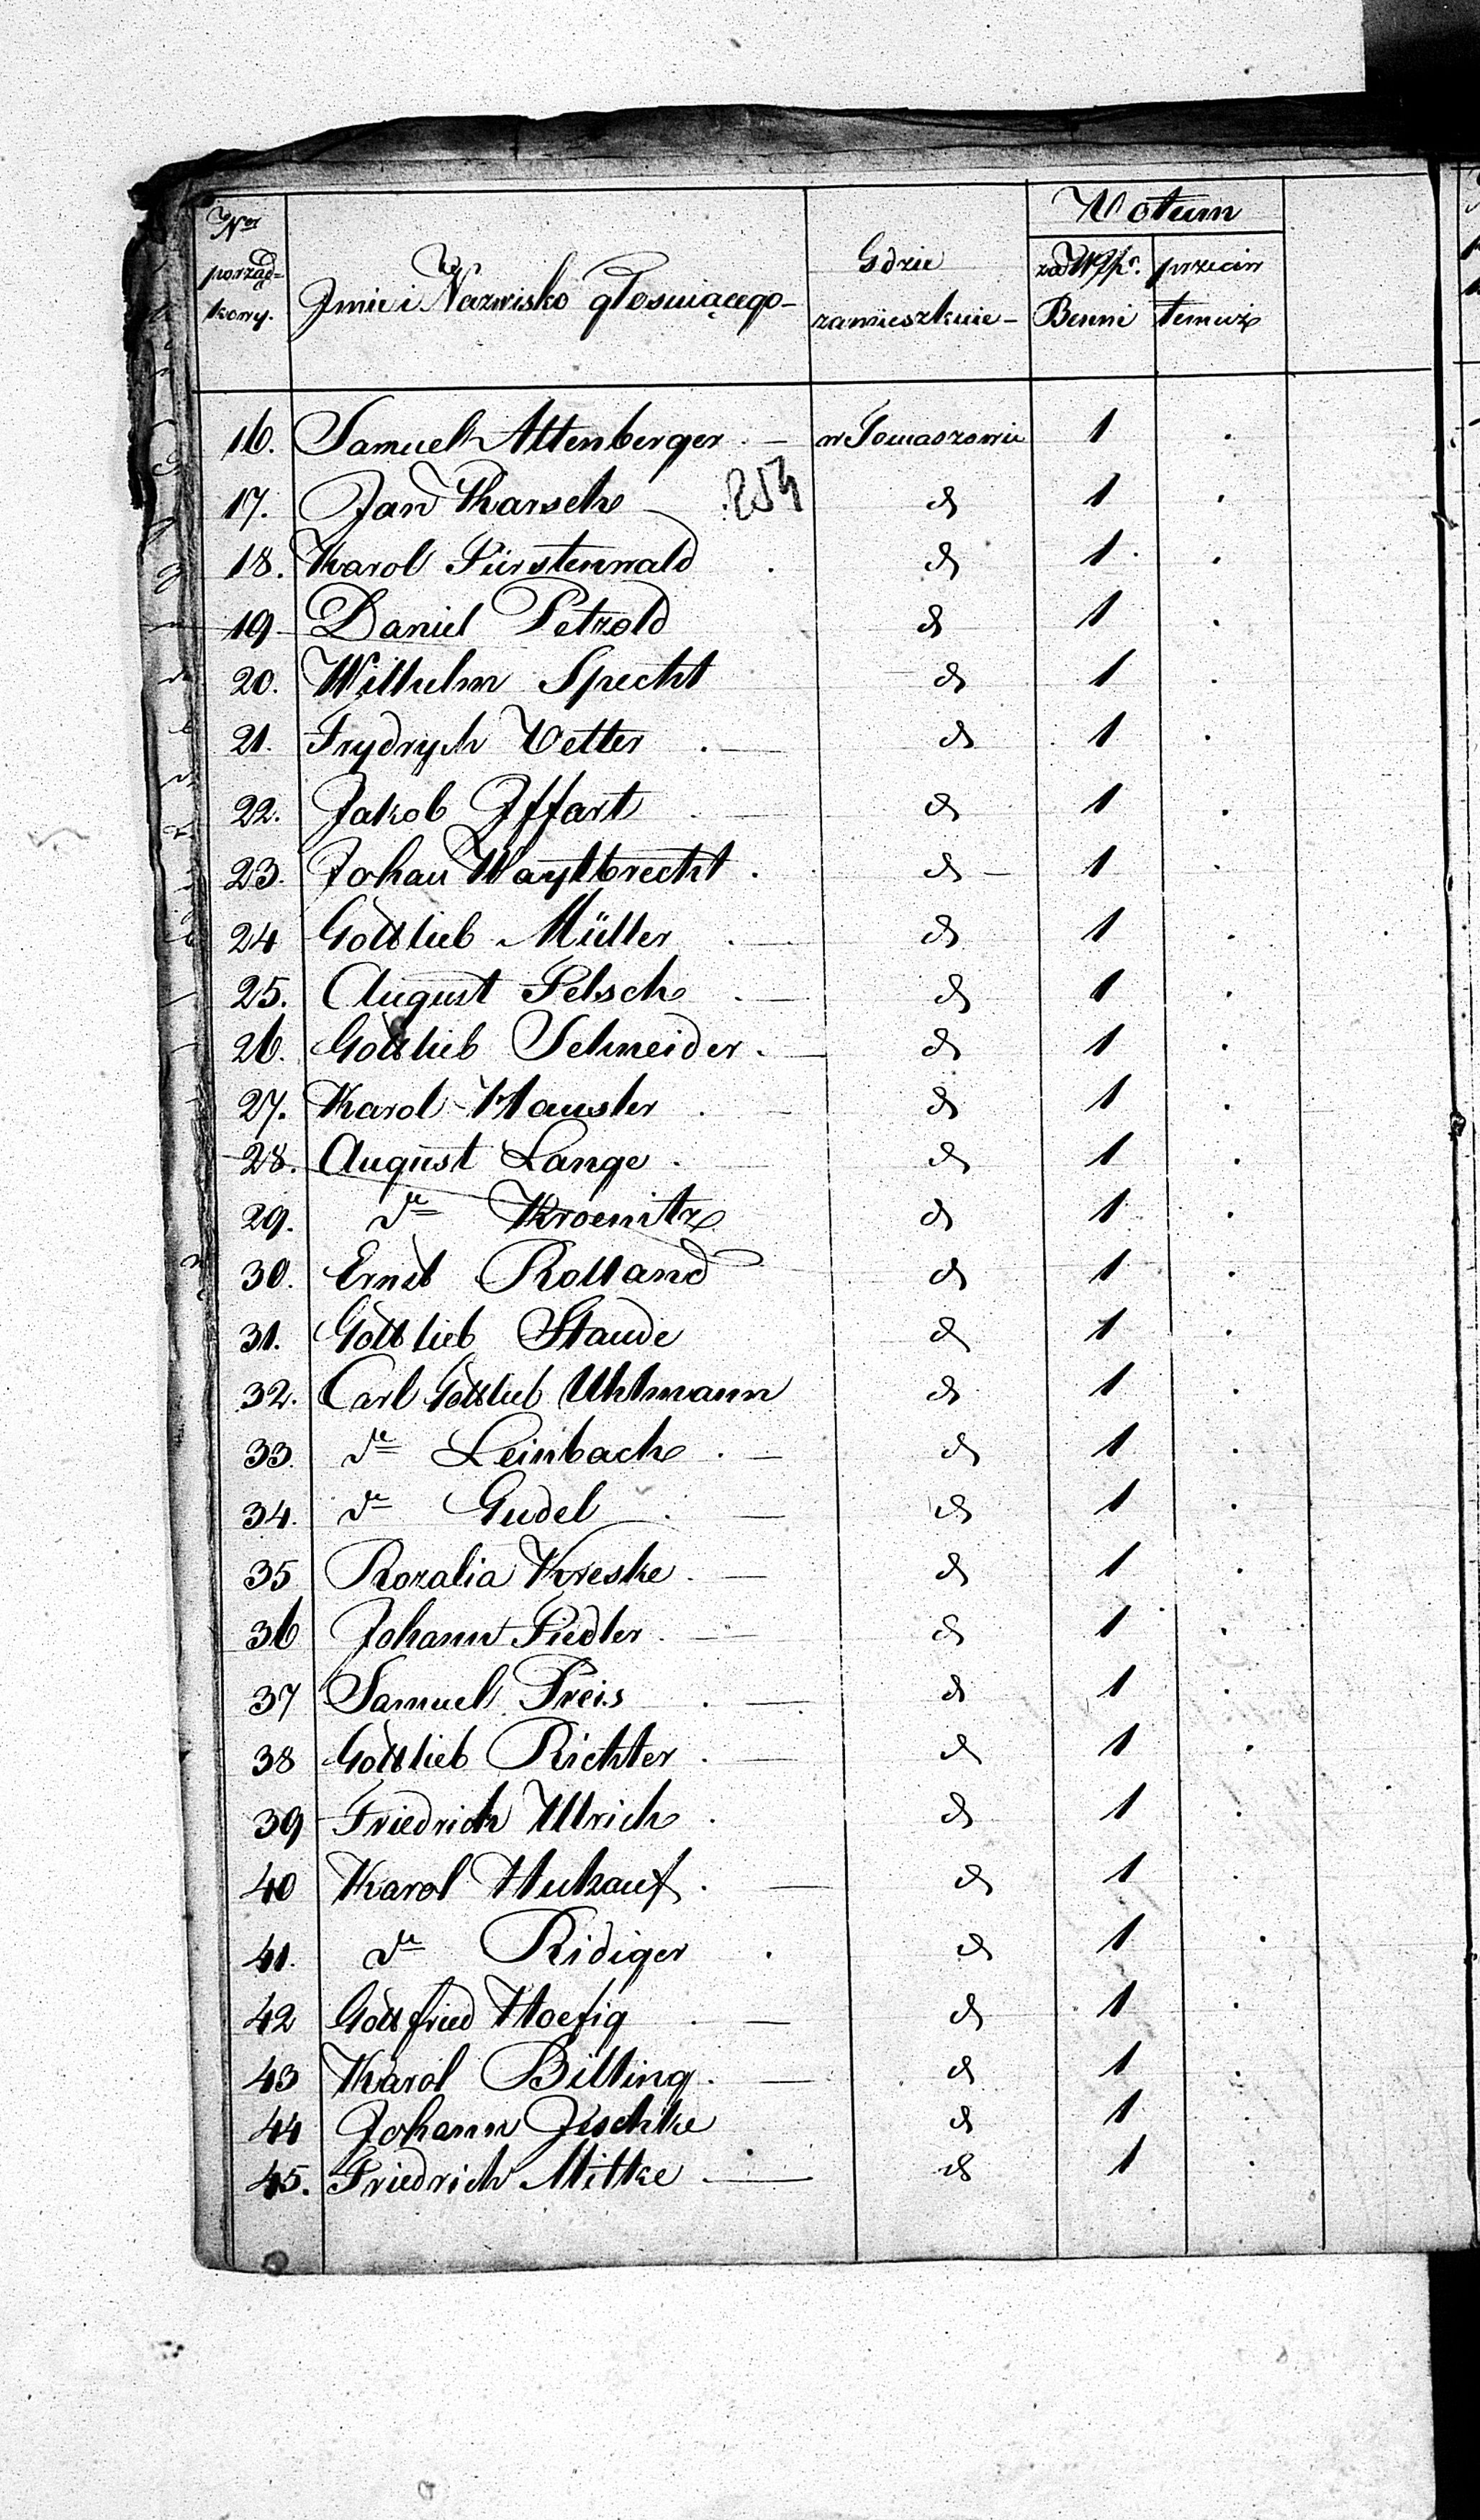 Nr porząd= kowy. Jmie i Nazwisko głosuiącego- Gdzie zamieszkuie- Votum
za Benni przeciw temuż
16. Samuel Altenberger - w Tomaszowie 1 .
254
17. Jan Karsch d 1 .
18. Karol Fürstenwald d 1 .
19 Daniel Petzold d 1 .
20. Wilhelm Specht d 1 .
21. Frydrych Vetter . d 1 .
22. Jakob Jffart d 1 .
23. Johan Waytbrecht . d 1 .
24 Gottlieb Müller . d 1 .
25. August Pelsch d 1 .
26. Gottlieb Schneider . d 1 .
27. Karol Hausler . d 1 .
28. August Lange . d 1 .
29. do Kroenitz d 1 .
30. Ernst Rolland d 1 .
31. Gottlieb Staude d 1 .
32. Carl Gottlieb Uhlmann d 1 .
33. do Leinbach . - d 1 .
34. do Gudel . - d 1 .
35 Rozalia Kreske . - d 1 .
36 Johann Fiedler . - d 1 .
37 Samuel Preis . - d 1 .
38 Gottlieb Richter . - d 1 .
39 Friedrich Ullrich . d 1 .
40 Karol Hukauf . - d 1 .
41. do Ridiger . d 1 .
42 Gottfried Hoefig . - d 1 .
43 Karol Billing . - d 1 .
44 Johann Jeschke d 1 .
45. Friedrich Mittke . - d 1 .